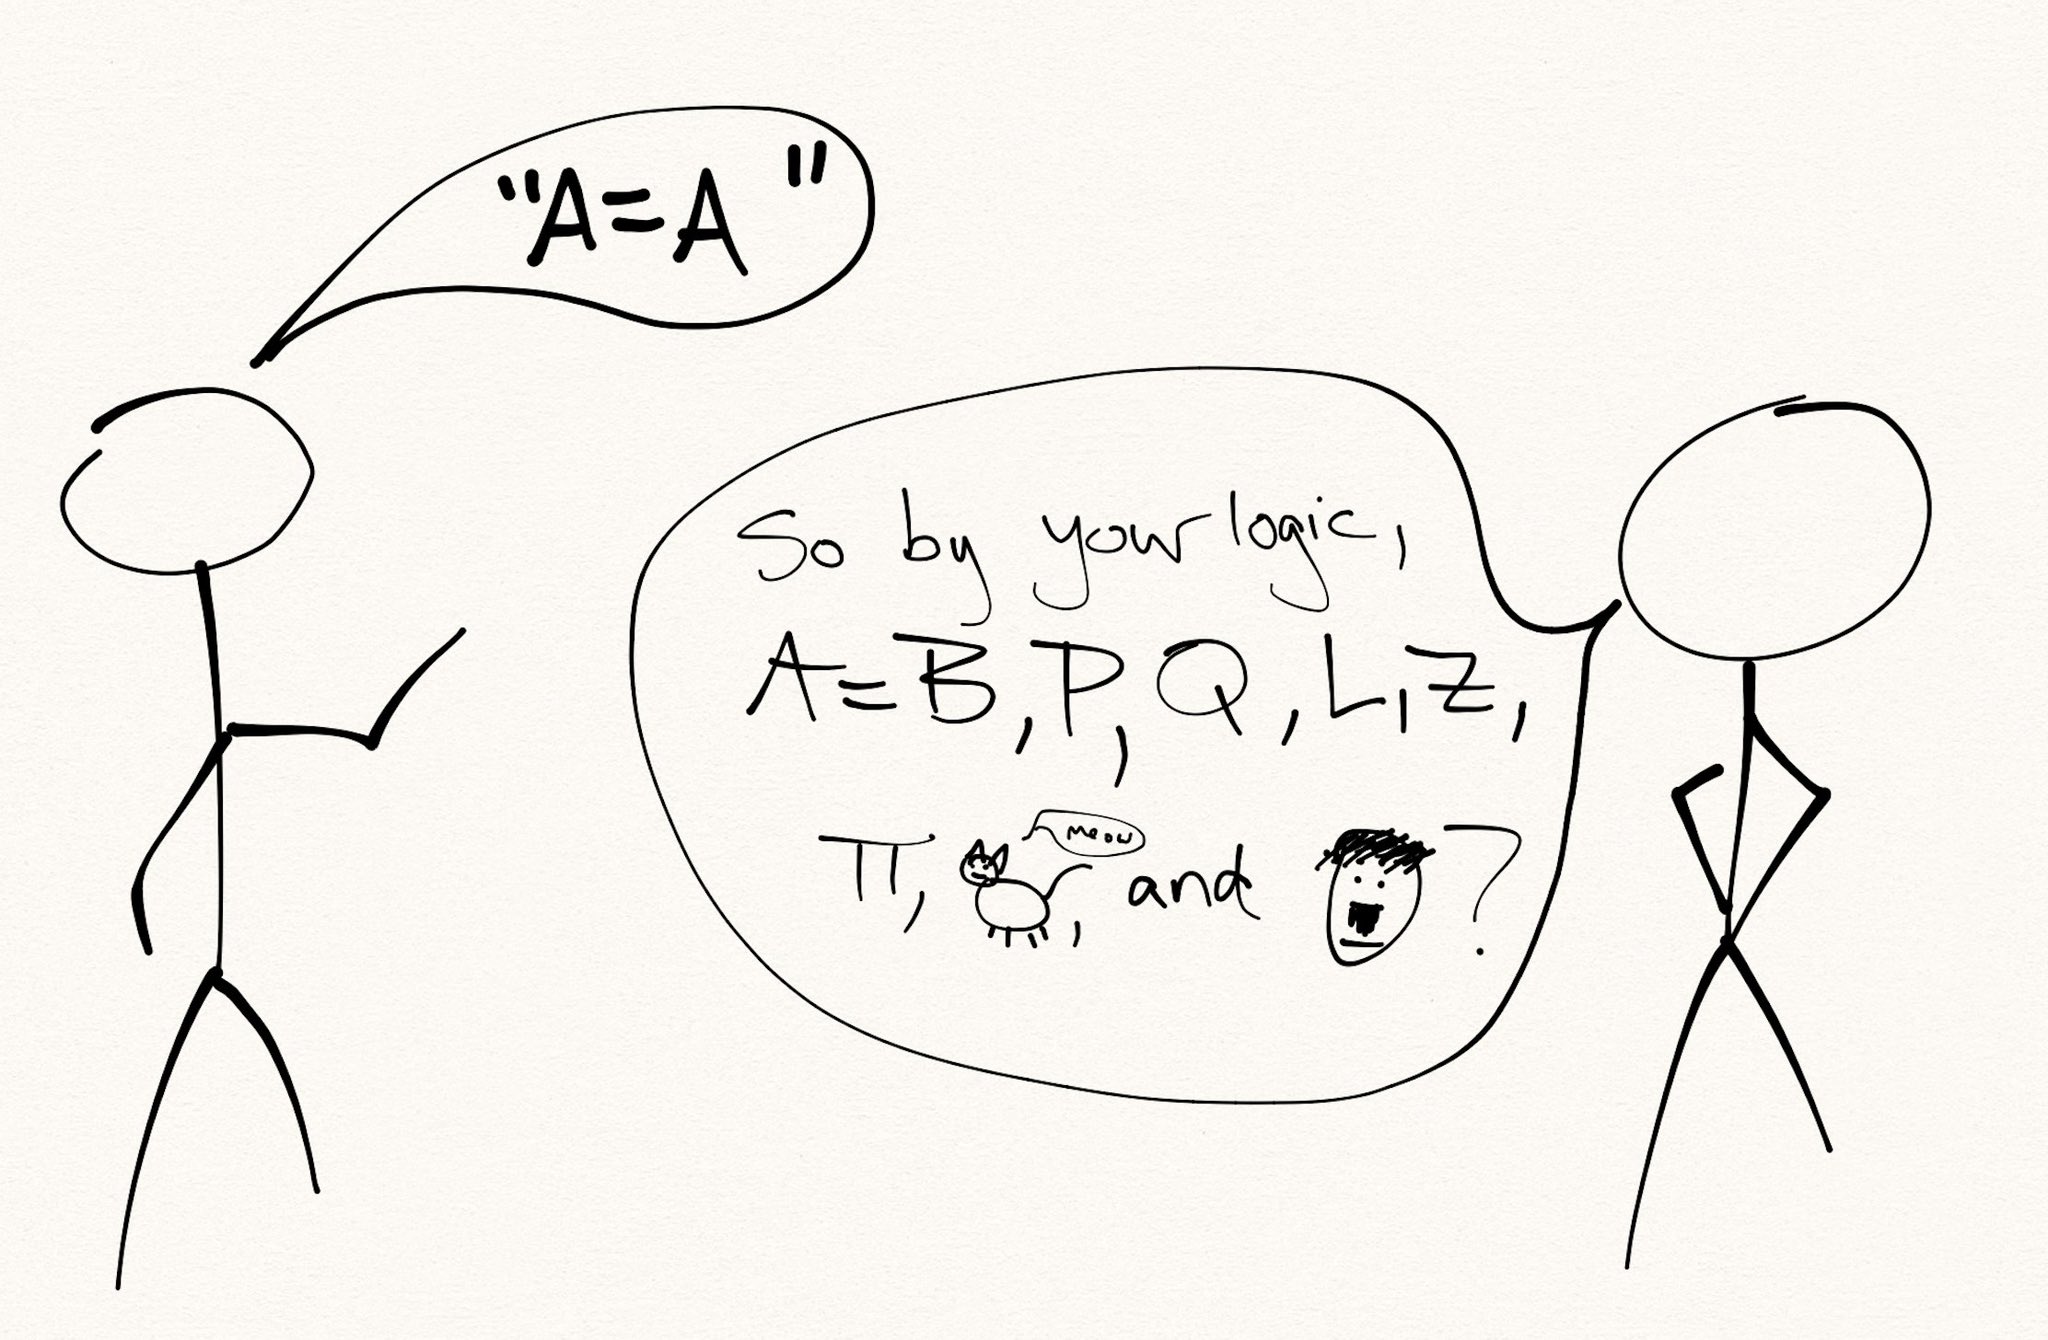 "A=A"
So by your logic,
A=B, P, Q, L, Z,
meow
π, , and ?